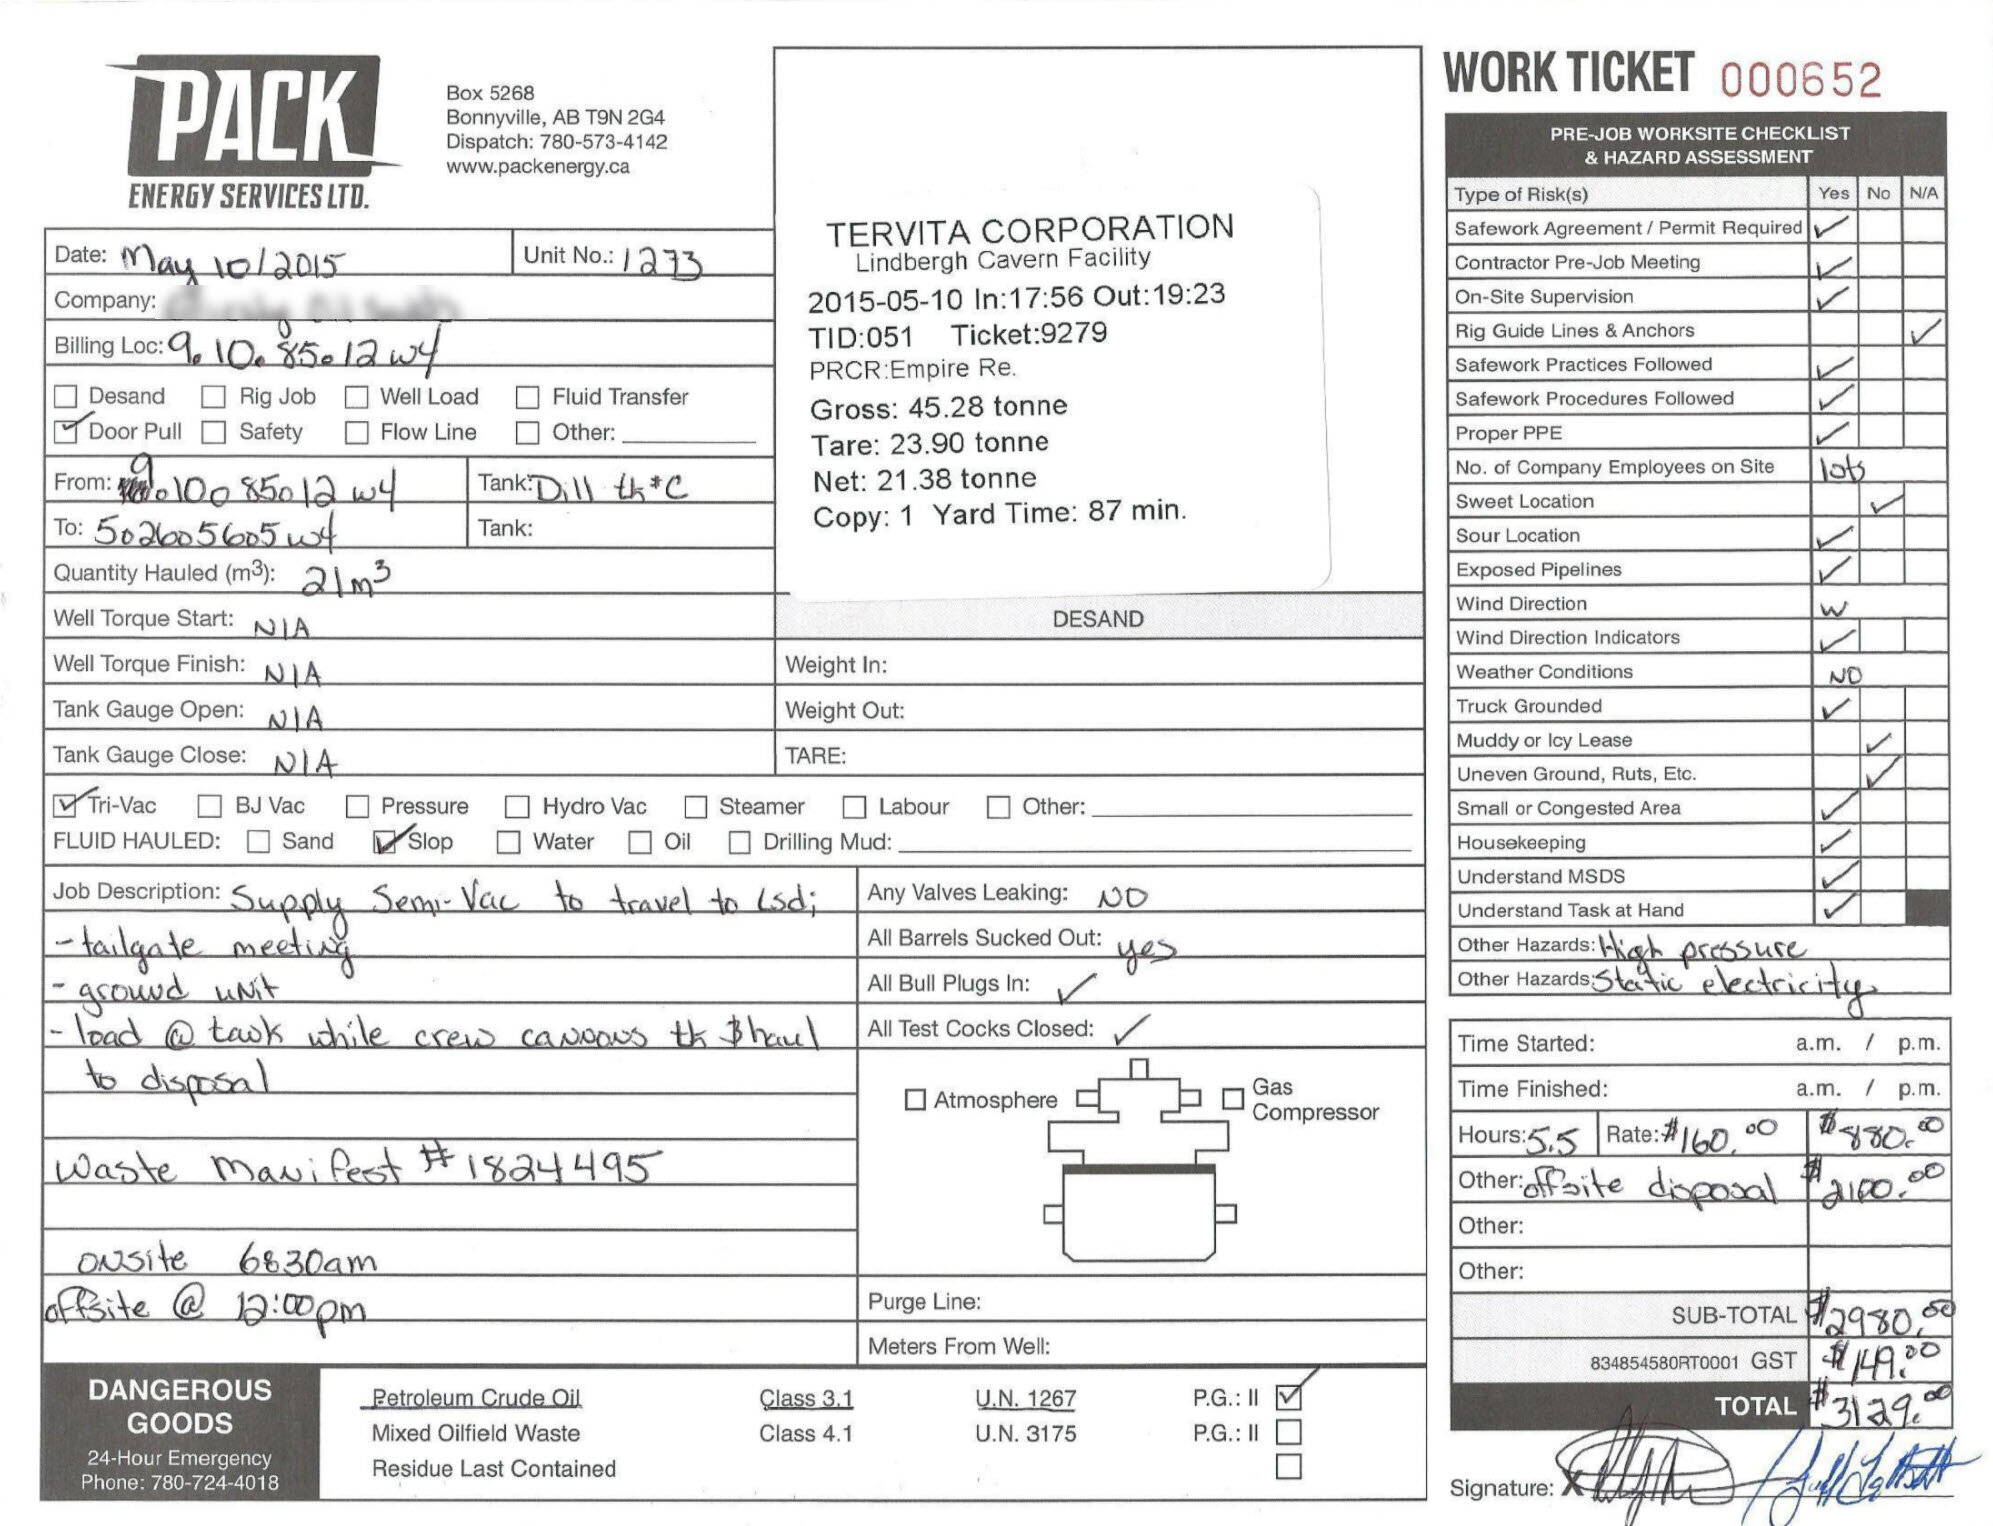 PACK
ENERGY SERVICES LTD.
Box 5268
Bonnyville, AB T9N 2G4
Dispatch: 780-573-4142
www.packenergy.ca
Date: May 10/2015 Unit No.: 1273
Company:
Billing Loc: 9.10.85.12 w4
Desand Rig Job Well Load Fluid Transfer
Door Pull Safety Flow Line Other:
From: 9.10.85.12 w4 Tank: Dill tk#C
To: 5.26.056.05 w4 Tank:
Quantity Hauled (m3): 21m3
Well Torque Start: N/A
Well Torque Finish: N/A
Tank Gauge Open: N/A
Tank Gauge Close: N/A
TERVITA CORPORATION
Lindbergh Cavern Facility
2015-05-10 In:17:56 Out:19:23
TID:051 Ticket:9279
PRCR:Empire Re.
Gross: 45.28 tonne
Tare: 23.90 tonne
Net: 21.38 tonne
Copy: 1 Yard Time: 87 min.
DESAND
Weight In:
Weight Out:
TARE:
Tri-Vac BJ Vac Pressure Hydro Vac Steamer Labour Other:
FLUID HAULED: Sand Slop Water Oil Drilling Mud:
Job Description: Supply Semi-Vac to travel to Lsd;
- tailgate meeting
- ground unit
- load @ tank while crew cannons tk & haul
to disposal
Waste Manifest # 1824495
onsite 6:30am
offsite @ 12:00pm
Any Valves Leaking: NO
All Barrels Sucked Out: yes
All Bull Plugs In: ✓
All Test Cocks Closed: ✓
Atmosphere
Gas
Compressor
Purge Line:
Meters From Well:
DANGEROUS
GOODS
24-Hour Emergency
Phone: 780-724-4018
Petroleum Crude Oil Class 3.1 U.N. 1267 P.G.: II
Mixed Oilfield Waste Class 4.1 U.N. 3175 P.G.: II
Residue Last Contained
WORK TICKET 000652
PRE-JOB WORKSITE CHECKLIST
& HAZARD ASSESSMENT
Type of Risk(s) Yes No N/A
Safework Agreement / Permit Required
Contractor Pre-Job Meeting
On-Site Supervision
Rig Guide Lines & Anchors
Safework Practices Followed
Safework Procedures Followed
Proper PPE
No. of Company Employees on Site lots
Sweet Location
Sour Location
Exposed Pipelines
Wind Direction W
Wind Direction Indicators
Weather Conditions NO
Truck Grounded
Muddy or Icy Lease
Uneven Ground, Ruts, Etc.
Small or Congested Area
Housekeeping
Understand MSDS
Understand Task at Hand
Other Hazards: High pressure
Other Hazards: Static electricity
Time Started: a.m. / p.m.
Time Finished: a.m. / p.m.
Hours: 5.5 Rate: $160.00 $880.00
Other: offsite disposal $2100.00
Other:
Other:
SUB-TOTAL $2980.00
834854580RT0001 GST $149.00
TOTAL $3129.00
Signature: X